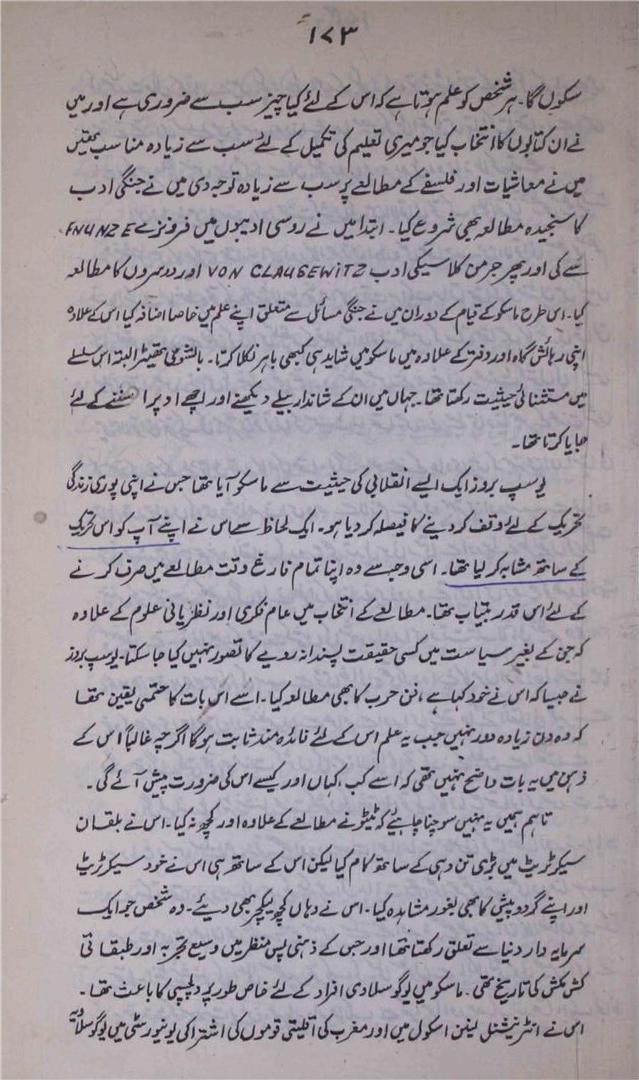 ۱۷۳
سکوں گا۔ ہر شخص کو علم ہوتا ہے کہ اس کے لئے کیا چیز سب سے ضروری ہے اور میں
نے ان کتابوں کا انتخاب کیا جو میری تعلیم کی تکمیل کے لئے سب سے زیادہ مناسب تھیں
میں نے معاشیات اور فلسفے کے مطالعے پر سب سے زیادہ توجہ دی میں نے جنگی ادب
کا سنجیدہ مطالعہ بھی شروع کیا۔ ابتدا میں نے روسی ادیبوں میں فرونزے FNUNZE
سے کی اور پھر جرمن کلاسیکی ادب VON CLAUSEWITZ اور دوسروں کا مطالعہ
کیا۔ اس طرح ماسکو کے قیام کے دوران میں نے جنگی مسائل سے متعلق اپنے علم میں خاصا اضافہ کیا اس کے علاوہ
اپنی رہائش گاہ اور دفتر کے علاوہ میں ماسکو میں شاید ہی کبھی باہر نکلا کرتا۔ بالشوئی تھیٹر البتہ اس سلسلے
میں مستثنائی حیثیت رکھتا تھا۔ جہاں میں ان کے شاندار بیلے دیکھنے اور اچھے اوپرا سننے کے لئے
جایا کرتا تھا۔
یوسپ بروز ایک ایسے انقلابی کی حیثیت سے ماسکو آیا تھا جس نے اپنی پوری زندگی
تحریک کے لئے وقف کر دینے کا فیصلہ کر دیا ہو۔ ایک لحاظ سے اس نے اپنے آپ کو اس تحریک
کے ساتھ مشابہ کر لیا تھا۔ اسی وجہ سے وہ اپنا تمام فارغ وقت مطالعے میں صرف کرنے
کے لئے اس قدر بیتاب تھا۔ مطالعے کے انتخاب میں عام فکری اور نظریاتی علوم کے علاوہ
کہ جن کے بغیر سیاست میں کسی حقیقت پسندانہ رویے کا تصور نہیں کیا جا سکتا۔ یوسپ بروز
نے جیسا کہ اس نے خود کہا ہے، فن حرب کا بھی مطالعہ کیا۔ اسے اس بات کا حتمی یقین تھا
کہ وہ دن زیادہ دور نہیں جب یہ علم اس کے لئے فائدہ مند ثابت ہوگا اگرچہ غالباً اس کے
ذہن میں یہ بات واضح نہیں تھی کہ اسے کب کہاں اور کیسے اس کی ضرورت پیش آئے گی۔
تاہم ہمیں یہ نہیں سوچنا چاہیے کہ ٹیٹو نے مطالعے کے علاوہ اور کچھ نہ کیا۔ اس نے بلقان
سیکرٹریٹ میں بڑی تن دہی کے ساتھ کام کیا لیکن اس کے ساتھ ہی اس نے خود سیکرٹریٹ
اور اپنے گرد و پیش کا بھی بغور مشاہدہ کیا۔ اس نے وہاں کچھ لیکچر بھی دیئے۔ وہ شخص جو ایک
سرمایہ دار دنیا سے تعلق رکھتا تھا اور جس کے ذہنی پس منظر میں وسیع تجربہ اور طبقاتی
کش مکش کی تاریخ تھی۔ ماسکو میں یوگوسلاوی افراد کے لئے خاص طور پر دلچسپی کا باعث تھا۔
اس نے انٹرنیشنل لینن اسکول میں اور مغرب کی اقلیتی قوموں کی اشتراکی یونیورسٹی میں یوگوسلاویہ